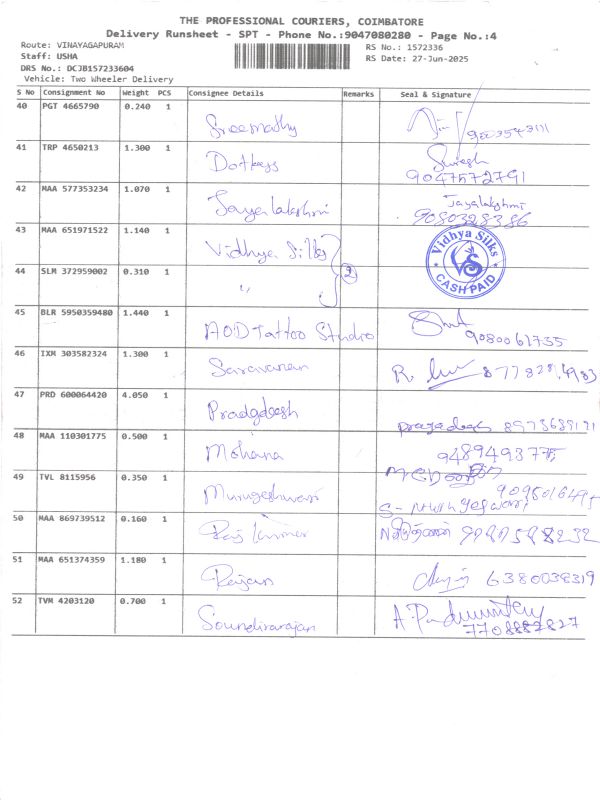 THE PROFESSIONAL COURIERS, COIMBATORE
Delivery Runsheet - SPT - Phone No.:9047080280 - Page No.:4
Route: VINAYAGAPURAM
RS No.: 1572336
Staff: USHA
RS Date: 27-Jun-2025
DRS No.: DCJB157233604
Vehicle: Two Wheeler Delivery
S No Consignment No Weight PCS Consignee Details Remarks Seal & Signature
40 PGT 4665790 0.240 1 Sreemathy
41 TRP 4650213 1.300 1 Suresh
9047572791
42 MAA 577353234 1.070 1 Jayalakshmi Jayalakshmi
9080328386
43 MAA 651971522 1.140 1 Vidhya Silks Vidhya Silks
44 SLM 372959002 0.310 1 " 2 VS CASH PAID
45 BLR 5950359480 1.440 1 AOD Tattoo Studio
9080061735
46 IXM 303582324 1.300 1 Saravanan R.
47 PRD 600064420 4.050 1 Pradgdeesh
48 MAA 110301775 0.500 1 Mohana
49 TVL 8115956 0.350 1 Murugeshwari
50 MAA 869739512 0.160 1 Raj Kumar
51 MAA 651374359 1.180 1 Rajan 6380038319
52 TVM 4203120 0.700 1 Soundirarajan
7708882827